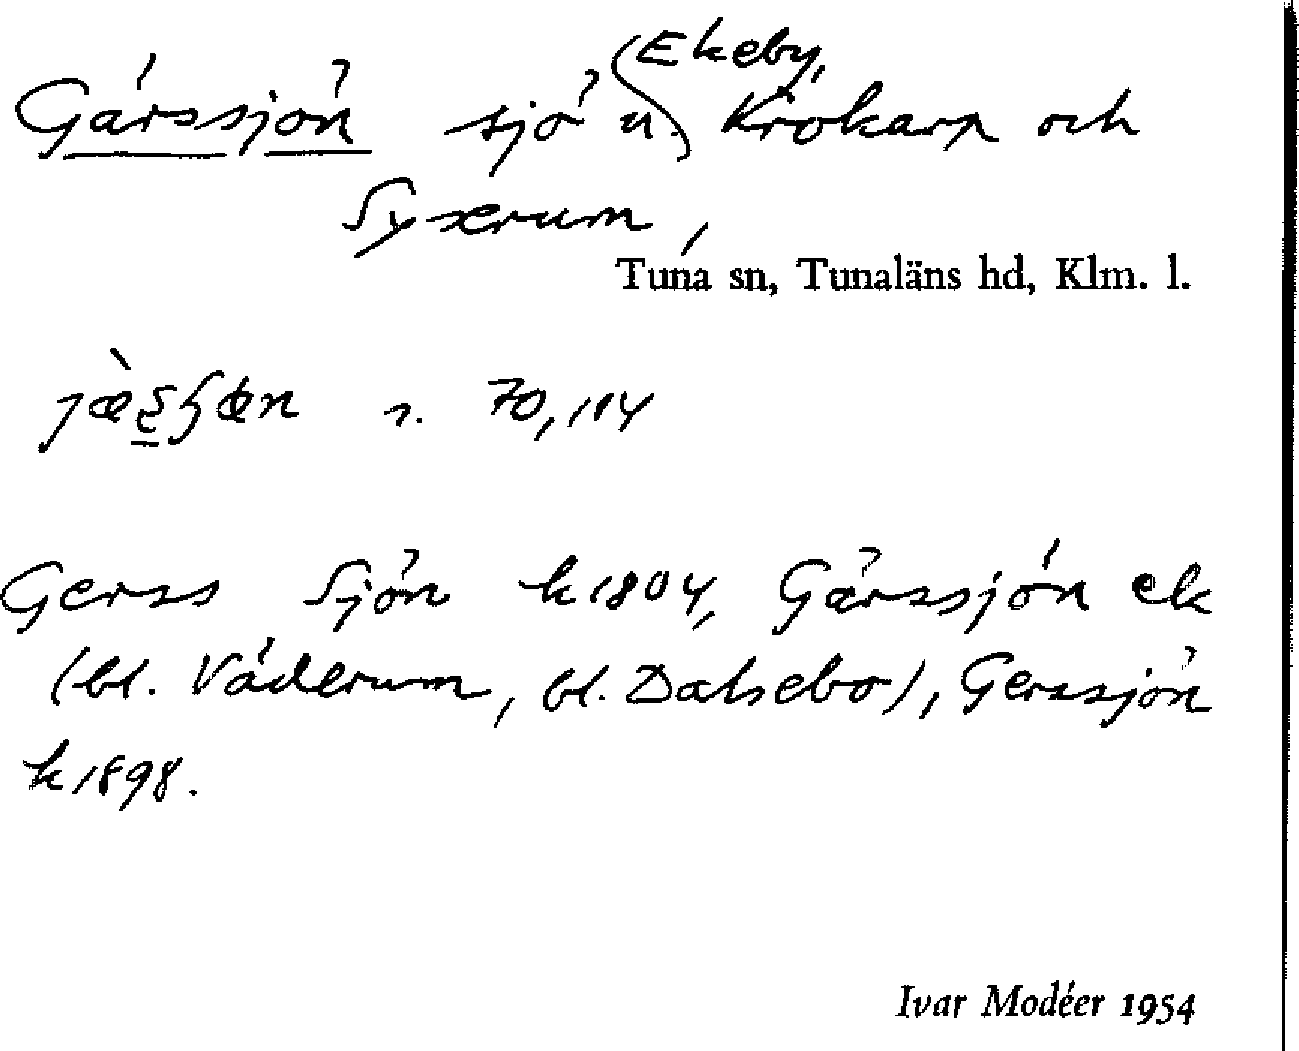 Gärssjön sjö u. Ekeby, Krokarp och
Syserum,
Tuna sn, Tunaläns hd, Klm. l.
70, 114
Gerss Sjön k 1804, Gärssjön ek
(bl. Väderum, bl. Dalsebo), Gerssjön
k 1898.
Ivar Modéer 1954